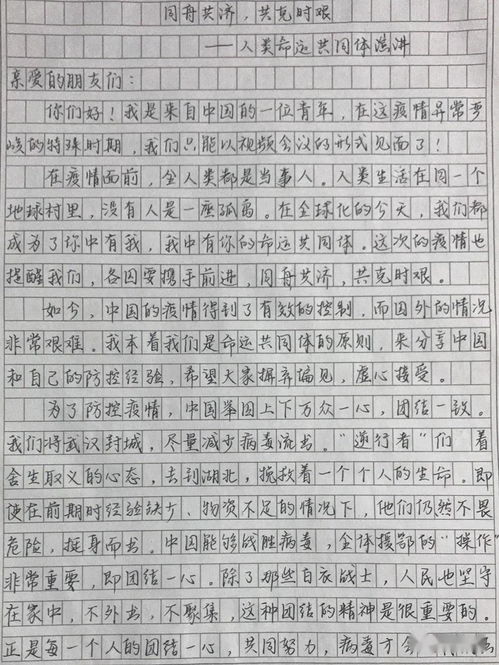 同舟共济，共克时艰
——人类命运共同体演讲
亲爱的朋友们：
你们好！我是来自中国的一位青年，在这疫情异常严
峻的特殊时期，我们只能以视频会议的形式见面了！
在疫情面前，全人类都是当事人。人类生活在同一个
地球村里，没有人是一座孤岛。在全球化的今天，我们都
成为了你中有我，我中有你的命运共同体。这次的疫情也
提醒我们，各国要携手前进，同舟共济，共克时艰。
如今，中国的疫情得到了有效的控制，而国外的情况
非常艰难。我本着我们是命运共同体的原则，来分享中国
和自己的防控经验，希望大家摒弃偏见，虚心接受。
为了防控疫情，中国举国上下万众一心，团结一致。
我们将武汉封城，尽量减少病毒流出。“逆行者”们着
舍生取义的心态，去到湖北，挽救着一个个人的生命。即
使在前期时经验缺少、物资不足的情况下，他们仍然不畏
危险，挺身而出。中国能够战胜病毒，全体援鄂的“操作”
非常重要，即团结一心。除了那些白衣战士，人民也坚守
在家中，不外出，不聚集，这种团结的精神是很重要的。
正是每一个人的团结一心，共同努力，病毒才会